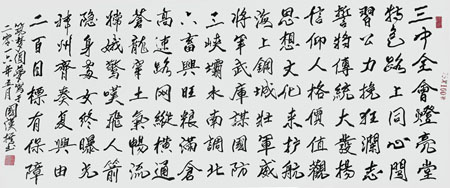 三中全會燈亮堂
特色路上同心闖
習公力挽狂瀾志
誓將傳統大發揚
信仰人格價值觀
思想文化来護航
海上鋼城壯軍威
將軍武庫謀國防
三峽壩水南調北
六畜興旺糧滿倉
高速路网縱橫通
蒼龍穿越氣暢流
嫦娥驚嘆飛人箭
隱身女終曝光
神州齊奏復興曲
二百目標有保障
筑梦圓夢
二零一六年五月國漢